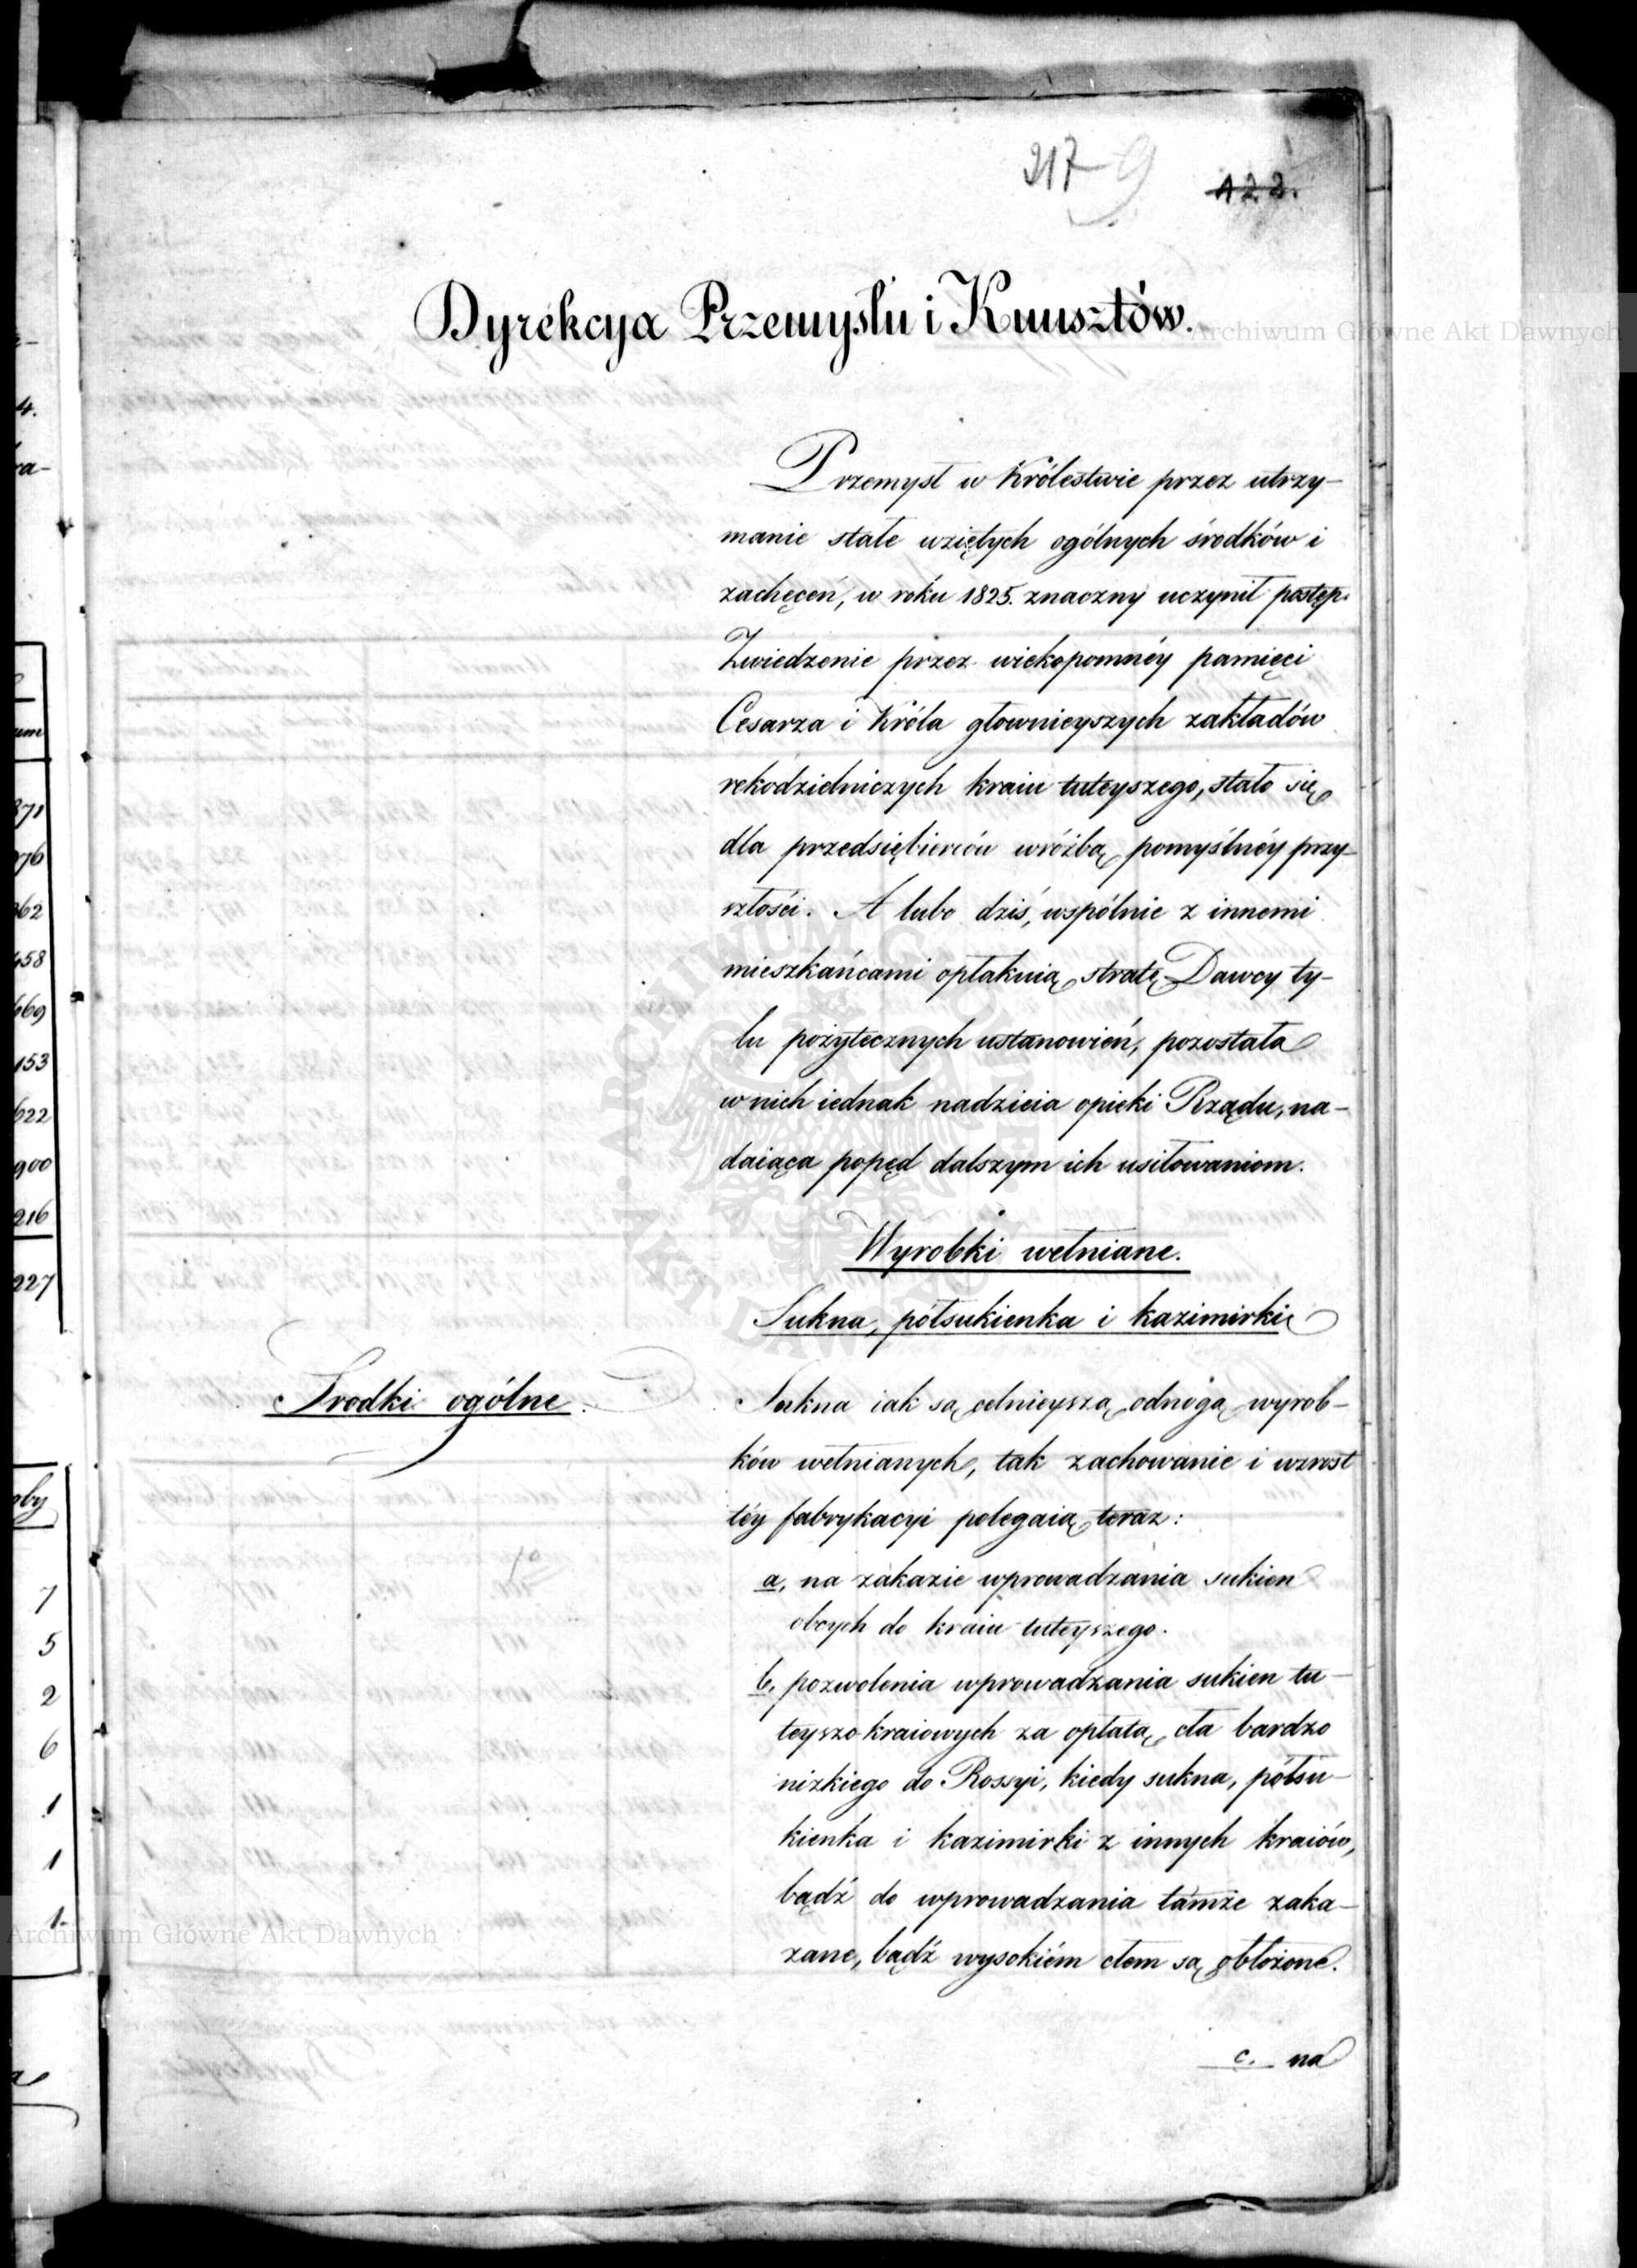 217 9 122.
Dyrekcya Przemysłu i Kunsztów.
Archiwum Główne Akt Dawnych
Przemysł w Królestwie przez utrzy-
manie stałe wziętych ogólnych środków i
zachęceń, w roku 1825. znaczny uczynił postęp.
Zwiedzenie przez wiekopomnéy pamięci
Cesarza i Króla głownieyszych zakładów
rekodzielniczych kraiu tuteyszego, stało się
dla przedsiębierców wróżbą pomyślnéy przy-
szłości. A lubo dziś, wspólnie z innemi
mieszkańcami opłakuią stratę Dawcy ty-
lu pożytecznych ustanowień, pozostała
w nich iednak nadzieia opieki Rządu, na-
daiąca popęd dalszym ich usiłowaniom.
Wyrobki wełniane.
Sukna, półsukienka i kazimirki
Srodki ogólne.
Sukna iak są celnieyszą odnogą wyrob-
ków wełnianych, tak zachowanie i wzrost
téy fabrykacyi polegaią teraz:
a, na zakazie wprowadzania sukien
obcych do kraiu tuteyszego.
b, pozwolenia wprowadzania sukien tu-
teyszo kraiowych za opłatą cła bardzo
nizkiego do Rossyi, kiedy sukna, półsu-
kienka i kazimirki z innych kraiów,
bądź do wprowadzania tamże zaka-
zane, bądź wysokiém cłem są obłożone.
c. na
4.
ra-
um
371
976
362
458
669
153
622
900
216
227
oby
7
5
2
6
1
1
1-
Archiwum Główne Akt Dawnych
ARCHIWUM GŁÓWNE · AKT DAWNYCH ·